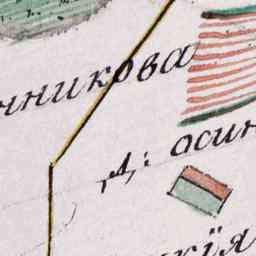 нникова
д: осин
кія